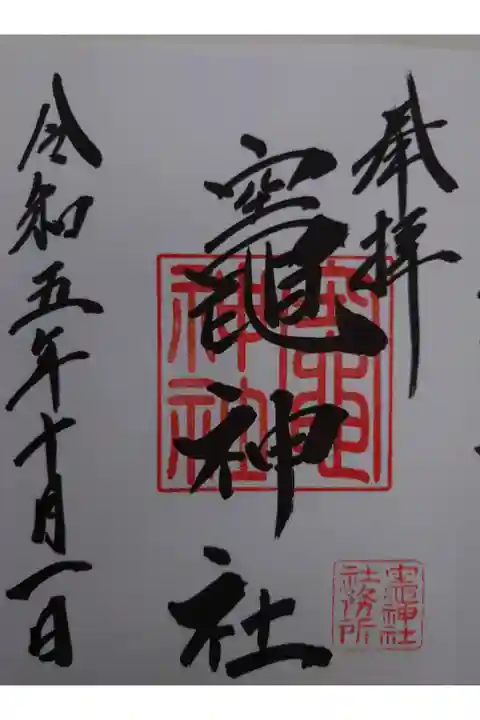 奉拝
竈神社
竈神社
竈神社
社務所
令和五年十月一日